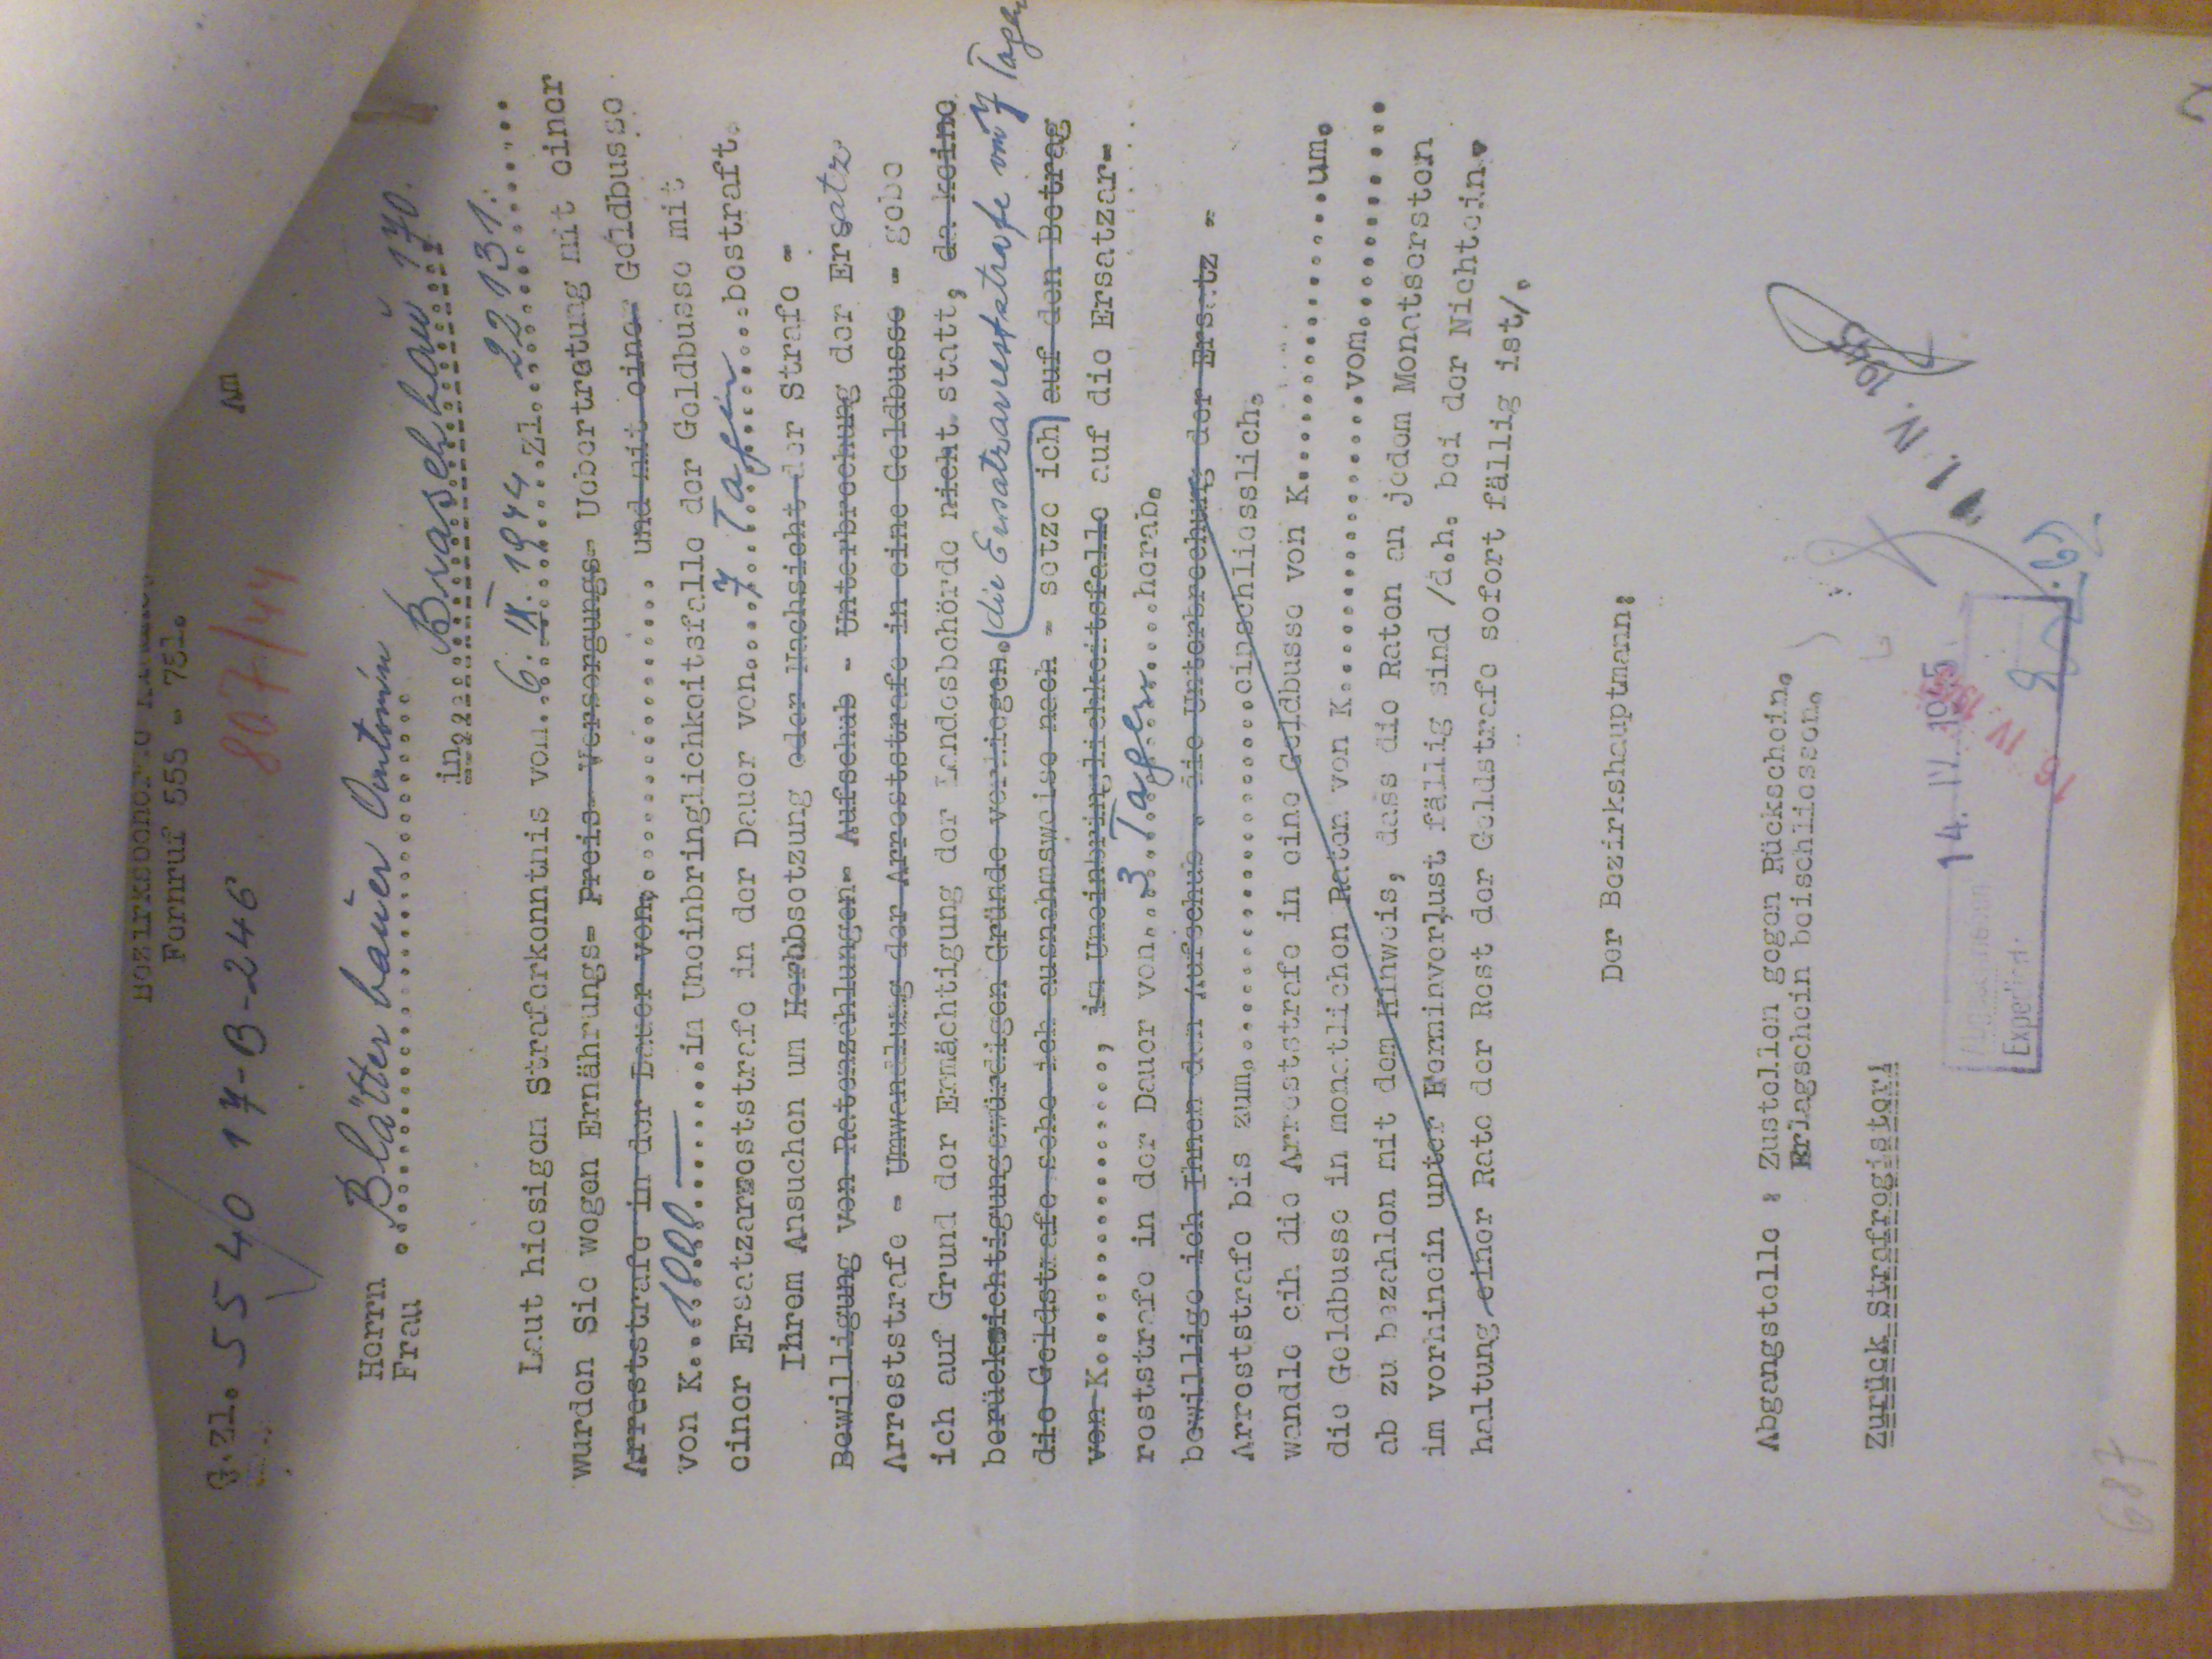 Bezirksbehörde
Fernruf 555 - 751.
G.Zl. 5540 17-B-246 807/44 Am
Herrn Blätterbauer Antonín
Frau ..............................
in.... Braschhau 170.
Laut hiesigem Straferkenntnis vom. 6. IX. 1944 Zl. 22131.
wurden Sie wegen Ernährungs- Preis- Versorgungs- Uebertretung mit einer
Arreststrafe in der Dauer von, ................ und mit einer Geldbusse
von K...1000.—......im Uneinbringlichkeitsfalle der Geldbusse mit
einer Ersatzarreststrafe in der Dauer von....7 Tagen....bestraft.
Ihrem Ansuchen um Herabsetzung oder Nachsicht der Strafe -
Bewilligung von Ratenzahlungen- Aufschub - Unterbrechung der Ersatz
Arreststrafe - Umwandlung der Arreststrafe in eine Geldbusse - gebe
ich auf Grund der Ermächtigung der Landesbehörde nicht statt, da keine
berücksichtigungswürdigen Gründe vorliegen. (die Ersatzarreststrafe von 7 Tagen
die Geldstrafe sehe ich ausnahmsweise nach - setze ich) auf den Betrag
von K................., im Uneinbringlichkeitsfalle auf die Ersatzar-
reststrafe in der Dauer von...3 Tagen......herab.
bewillige ich Ihnen den Aufschub - die Unterbrechung der Ersatz -
Arreststrafe bis zum.....................einschliesslich.
wandle cih die Arreststrafe in eine Geldbusse von K.................um.
die Geldbusse in monatlichen Raten von K.................vom............
ab zu bezahlen mit dem Hinweis, dass die Raten an jedem Monatsersten
im vorhinein unter Terminverlust fällig sind /d.h. bei der Nichtein-
haltung einer Rate der Rest der Geldstrafe sofort fällig ist/.
Der Bezirkshauptmann:
Abgangstelle : Zustellen gegen Rückschein.
Erlagschein beischliessen.
Zurück Strafregister!
11. IV. 1945
14. IV. 1945
Abgeschrieben
16. IV. 1945
Expediert:
687